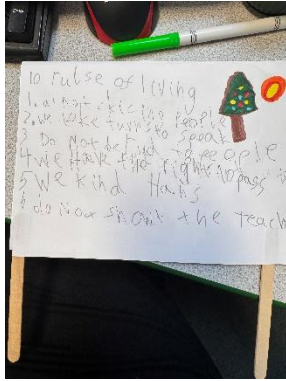 10 rulse of living
1. do not people
2. we take turns to speak
3 Do not be rud to people
4 we have the right to pass
5 We kind Hans
6 do not the teach